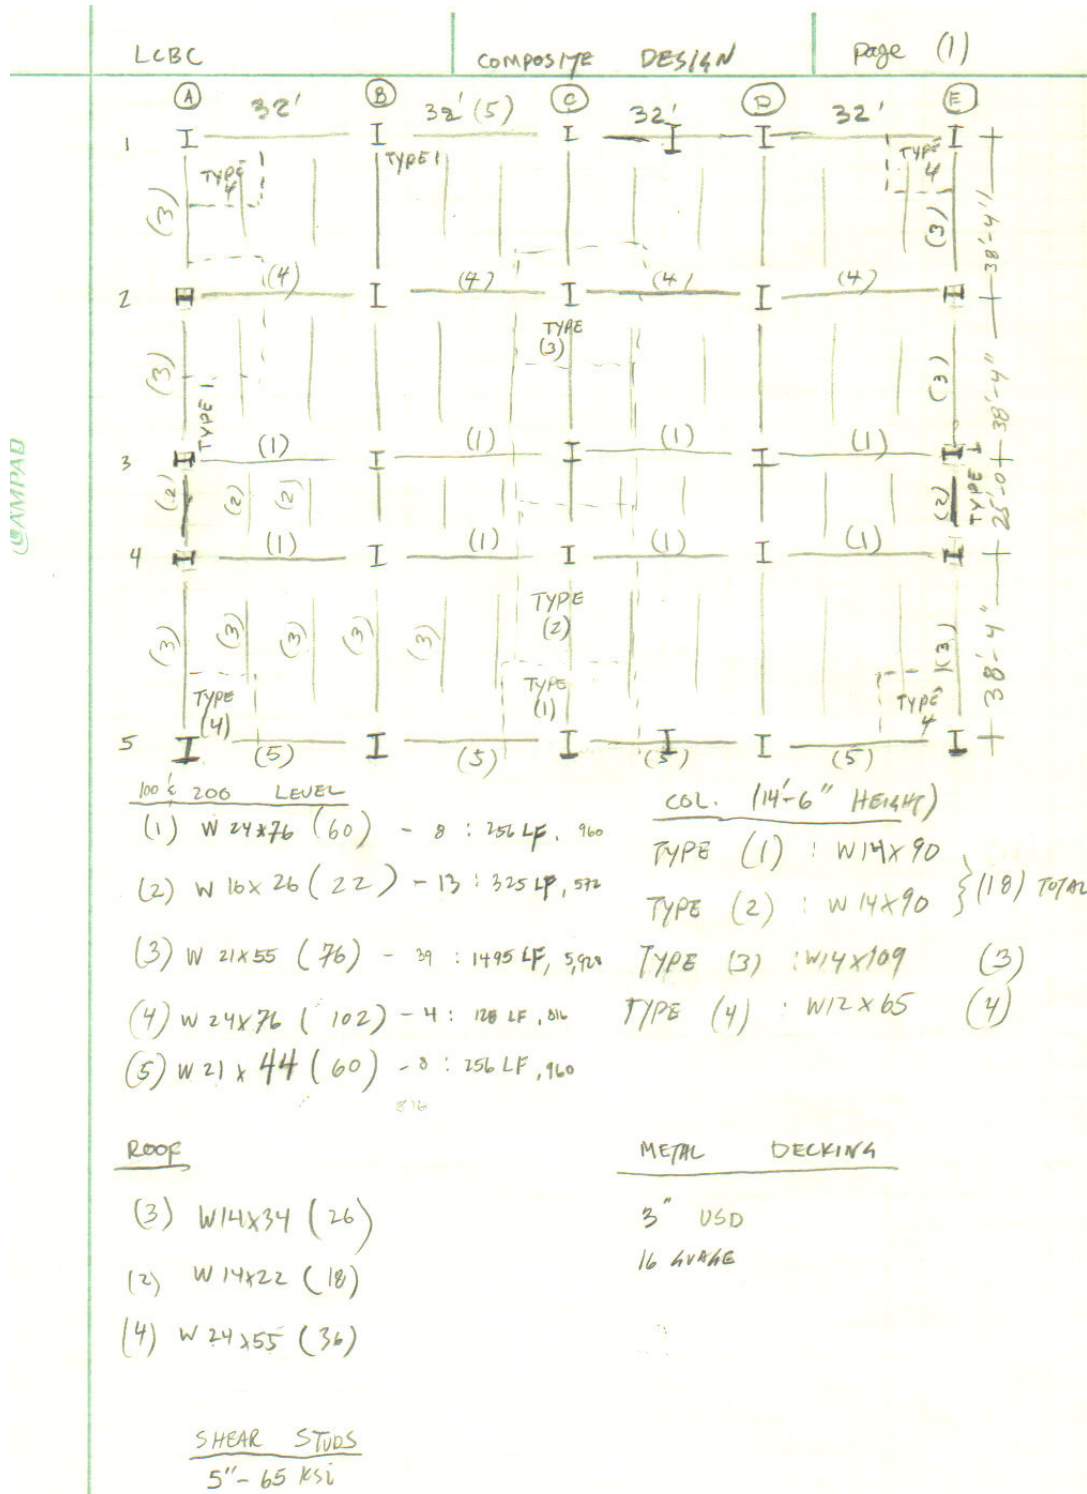 LCBC COMPOSITE DESIGN page (1)
A B C D E
32' 32' (5) 32' 32'
1
TYPE 4 TYPE 1 TYPE 4
(3) (3) 38'-4"
(4) (4) (4) (4)
2
TYPE (3)
(3) (3) 38'-4"
TYPE 1
(1) (1) (1) (1)
3
TYPE 1
(2) (2) (2) (2) 25'-0
(1) (1) (1) (1)
4
TYPE (2)
(3) (3) (3) (3) (3) (3) 38'-4"
TYPE (4) TYPE (1) TYPE 4
5
(5) (5) (5) (5)
@AMPAD
100 & 200 LEVEL
(1) W 24x76 (60) - 8 : 256 LF, 960
(2) W 16x26 (22) - 13 : 325 LF, 572
(3) W 21x55 (76) - 39 : 1495 LF, 5,928
(4) W 24x76 (102) - 4 : 128 LF, 816
(5) W 21 x 44 (60) - 8 : 256 LF, 960
816
COL. (14'-6" HEIGHT)
TYPE (1) : W14x90
TYPE (2) : W14x90 } (18) TOTAL
TYPE (3) : W14x109 (3)
TYPE (4) : W12x65 (4)
ROOF
(3) W14x34 (26)
(2) W14x22 (18)
(4) W 24x55 (36)
METAL DECKING
3" USD
16 GUAGE
SHEAR STUDS
5"- 65 KSi